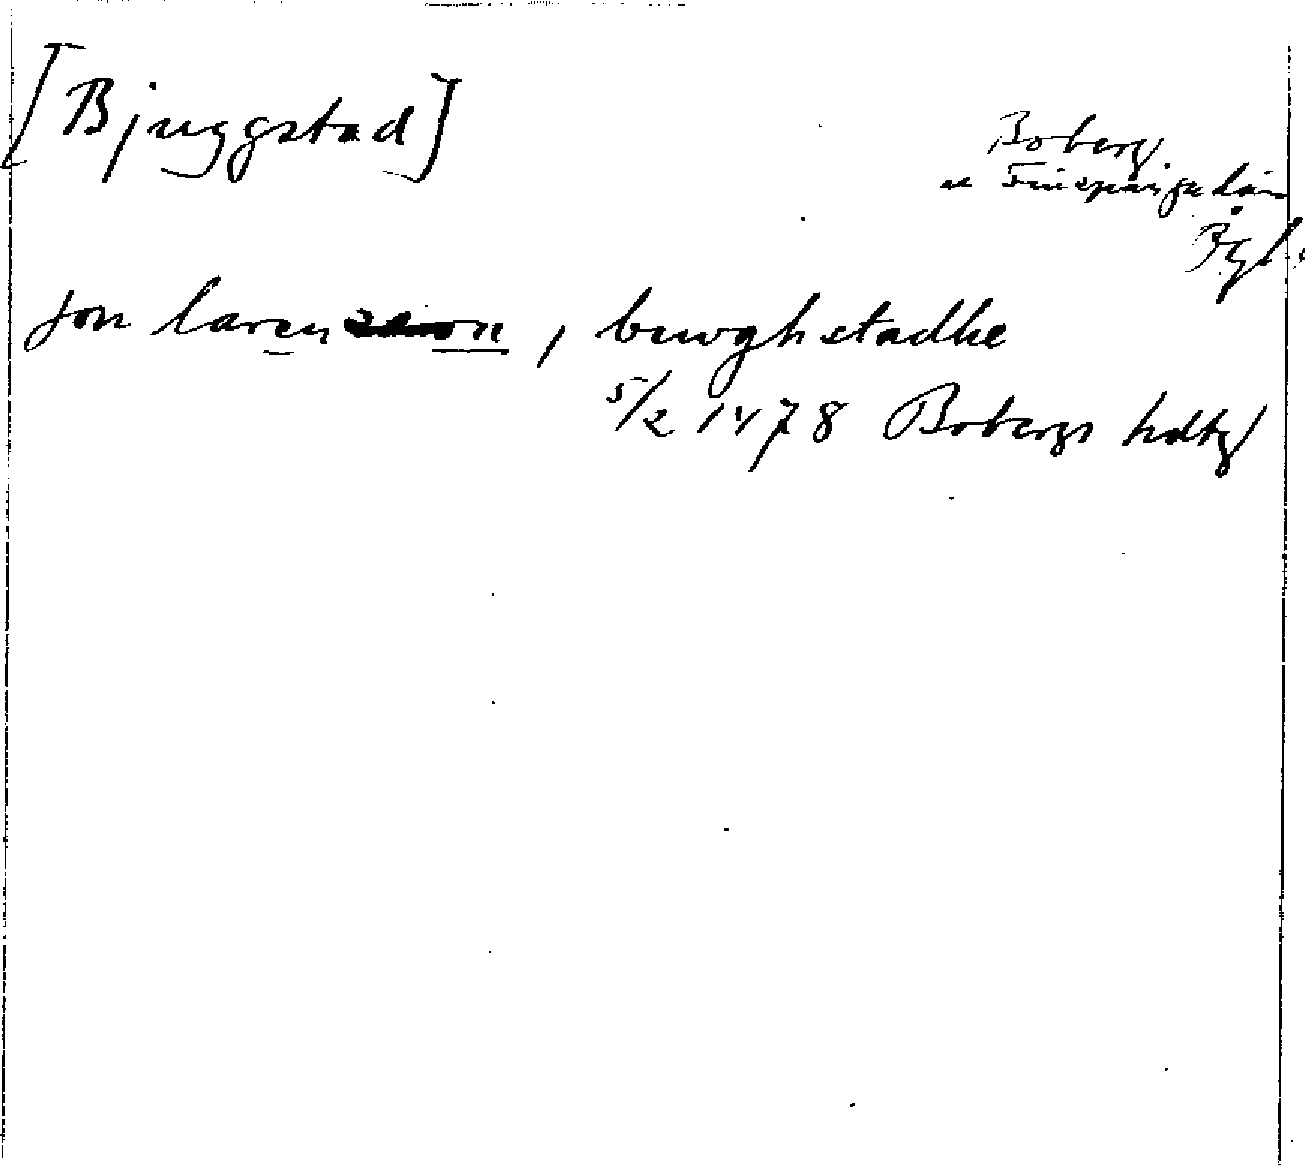 [Bjuggstad]
Boberg
o Finspånga län
Ögl.
Jon larens on, buwghstadhe
5/2 1478 Bobergs hdtg